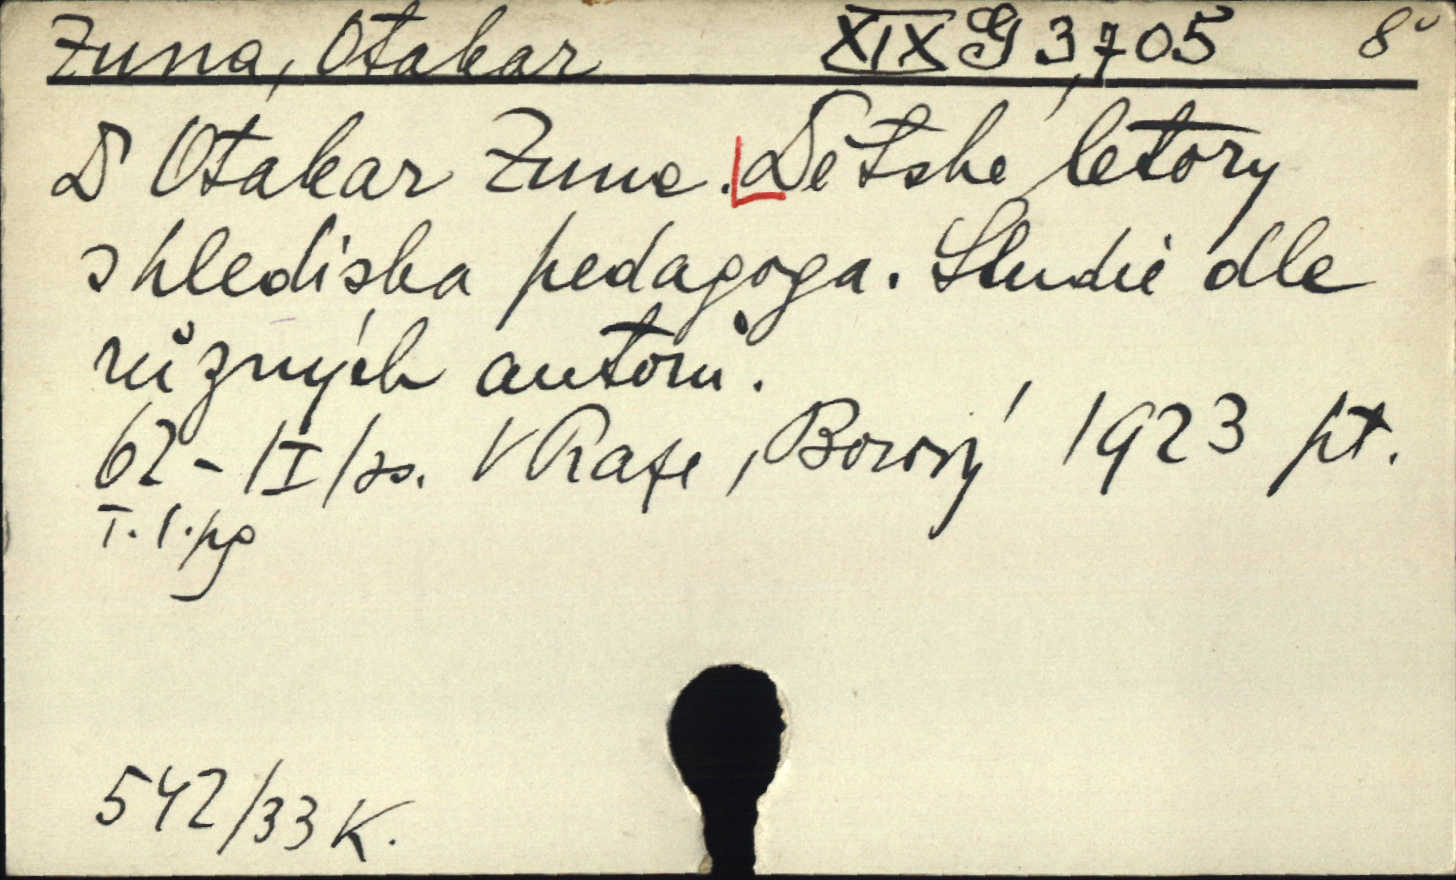 Zuna, Otakar XIX G 3,705 8°
D Otakar Zuna. Dětské letory
s hlediska pedagoga. Studie dle
různých autorů.
62 - |I| s. V Praze, Borový 1923 pt.
T. 1.
542/33 K.